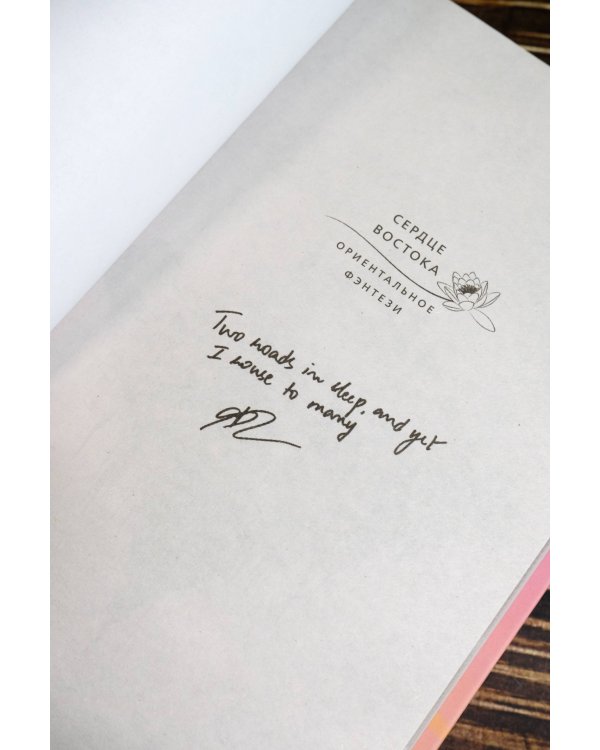 СЕРДЦЕ
ВОСТОКА
ОРИЕНТАЛЬНОЕ
ФЭНТЕЗИ
Two roads in sleep, and yet
I rouse to many